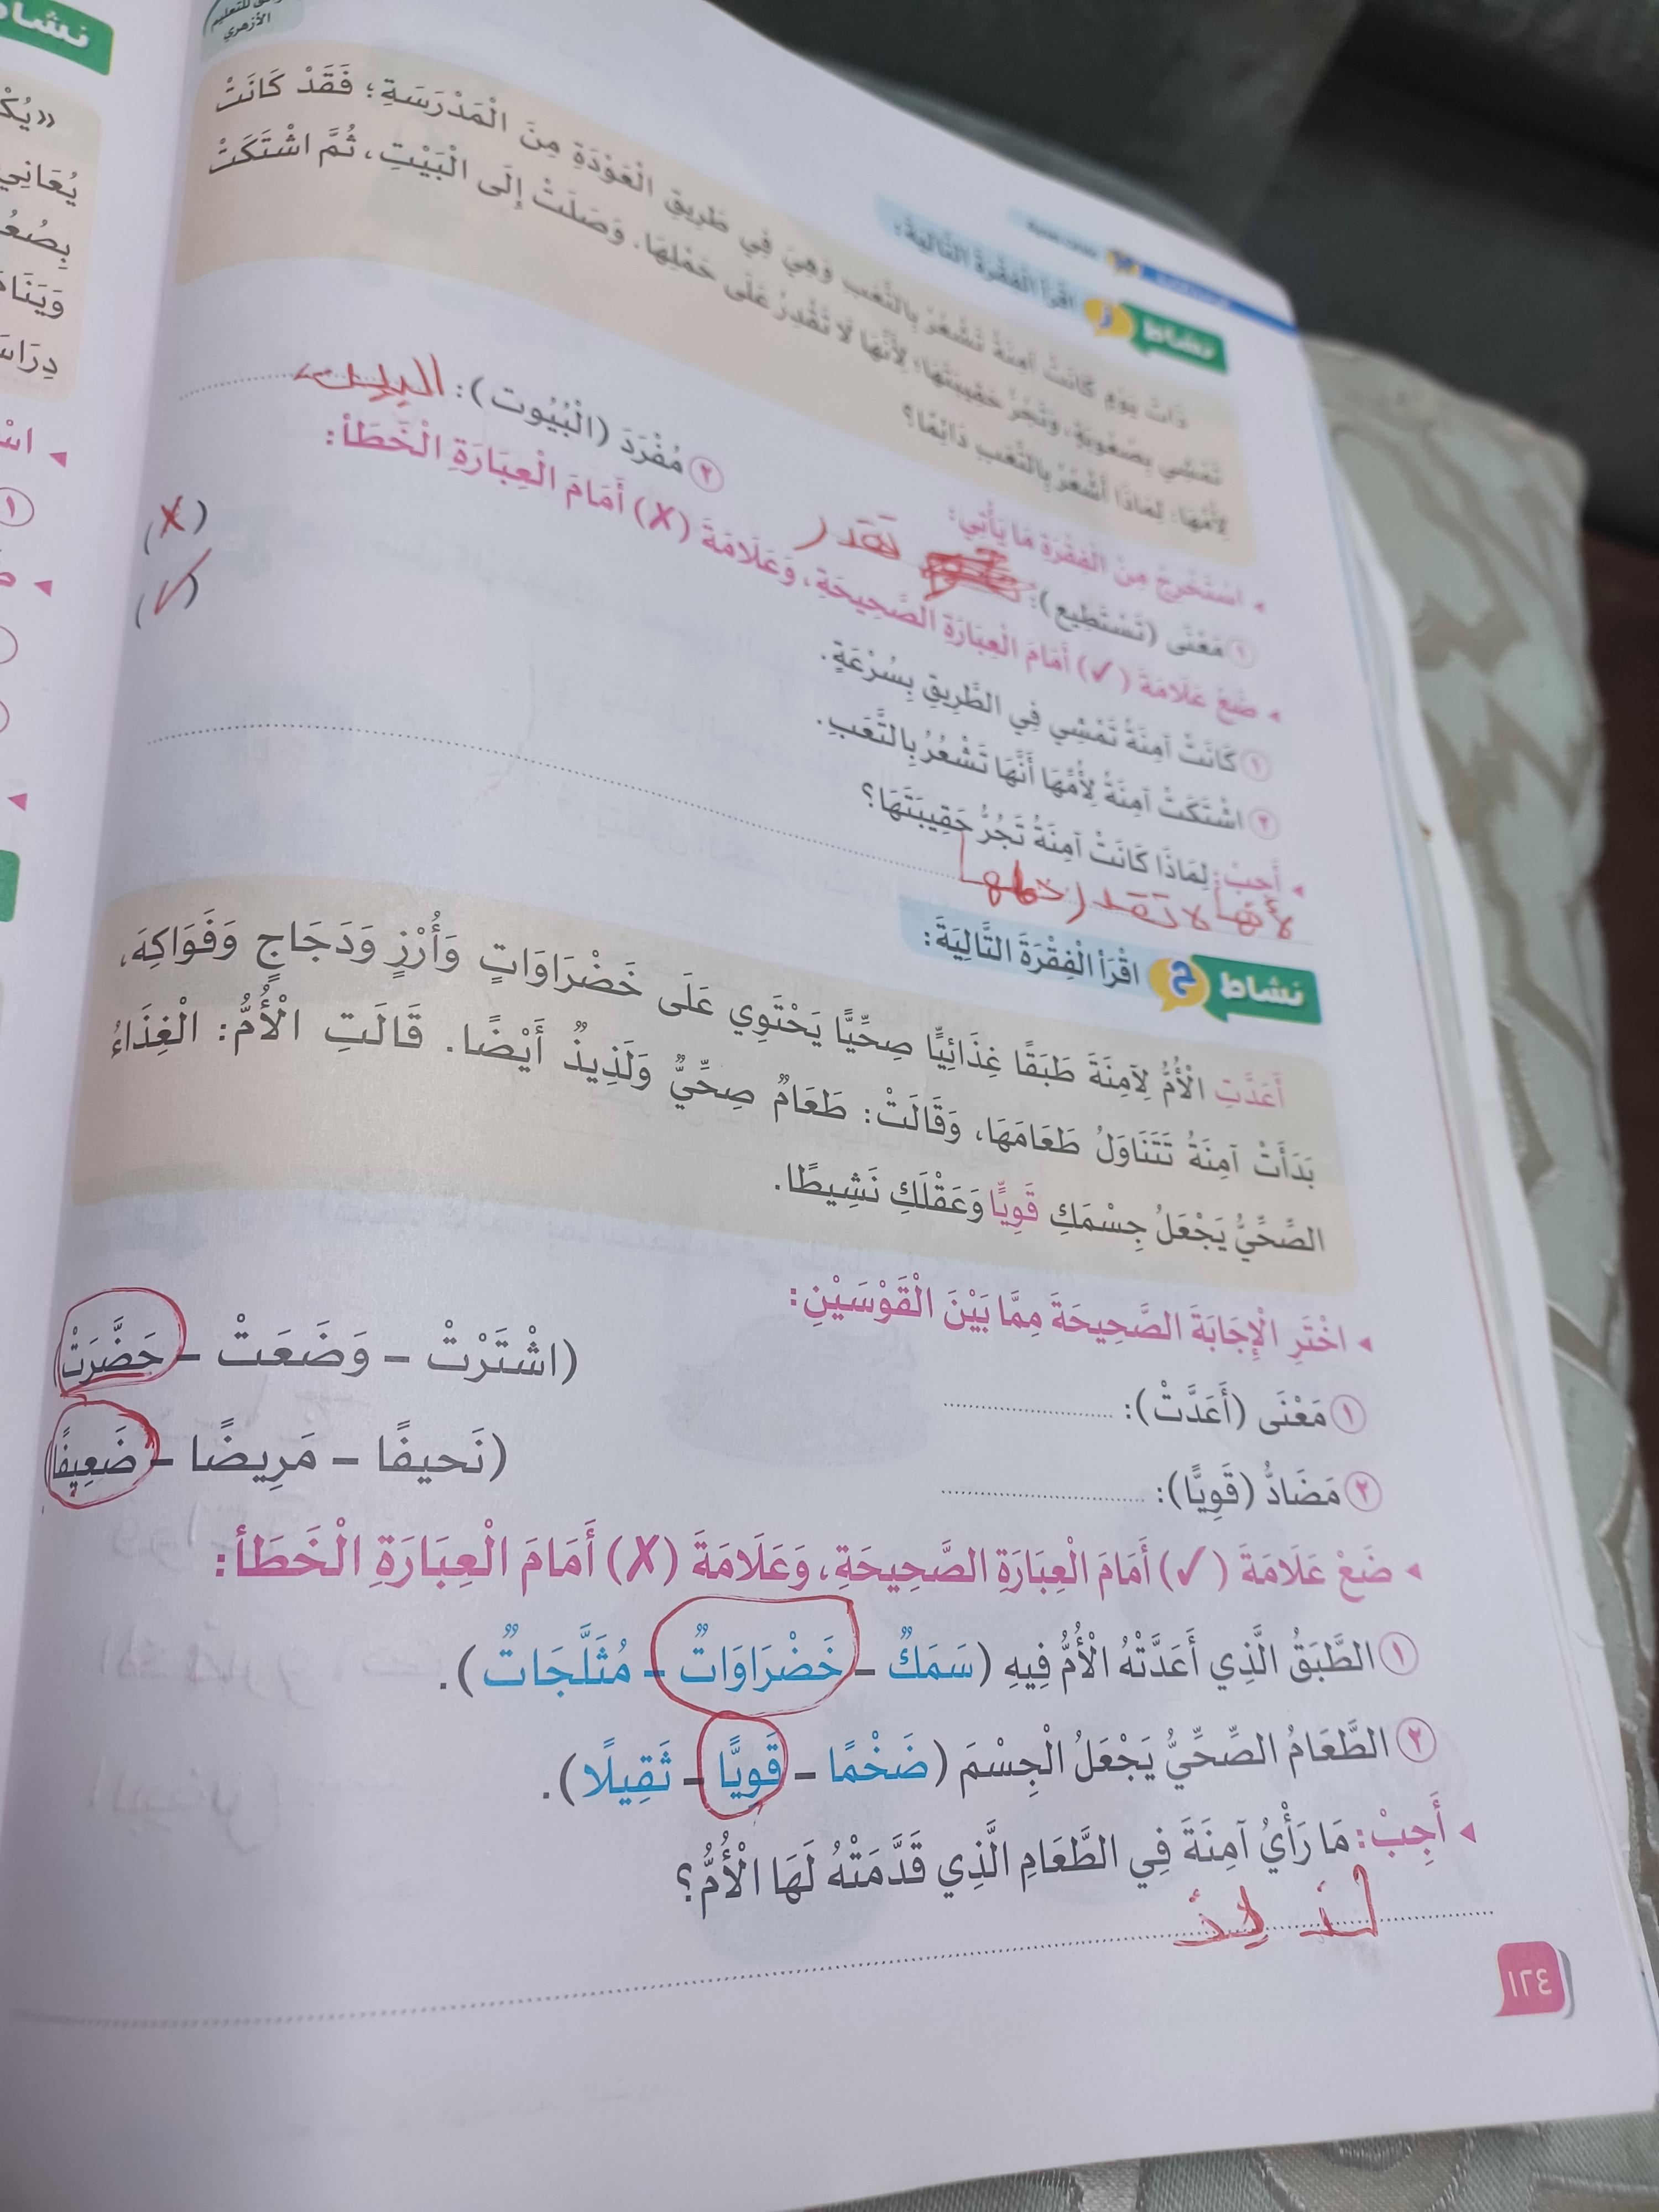 نشاط
للتعليم
الأزهري
نشاط ز اقْرَأ الْفِقْرَةَ التَّالِيَةَ:
ذَاتَ يَوْمٍ كَانَتْ آمِنَةُ تَشْعُرُ بِالتَّعَبِ وَهِيَ فِي طَرِيقِ الْعَوْدَةِ مِنَ الْمَدْرَسَةِ؛ فَقَدْ كَانَتْ
تَمْشِي بِصُعُوبَةٍ، وَتَجُرُّ حَقِيبَتَهَا؛ لِأَنَّهَا لَا تَقْدِرُ عَلَى حَمْلِهَا. وَصَلَتْ إِلَى الْبَيْتِ، ثُمَّ اشْتَكَتْ
لِأُمِّهَا: لِمَاذَا أَشْعُرُ بِالتَّعَبِ دَائِمًا؟
◂ اسْتَخْرِجْ مِنَ الْفِقْرَةِ مَا يَأْتِي:
١ مَعْنَى (تَسْتَطِيع): تقدر ٢ مُفْرَدَ (الْبُيُوت): البيت
◂ ضَعْ عَلَامَةَ (✓) أَمَامَ الْعِبَارَةِ الصَّحِيحَةِ، وَعَلَامَةَ (✗) أَمَامَ الْعِبَارَةِ الْخَطَأ:
١ كَانَتْ آمِنَةُ تَمْشِي فِي الطَّرِيقِ بِسُرْعَةٍ. (✗)
٢ اشْتَكَتْ آمِنَةُ لِأُمِّهَا أَنَّهَا تَشْعُرُ بِالتَّعَبِ. (✓)
◂ أَجِبْ: لِمَاذَا كَانَتْ آمِنَةُ تَجُرُّ حَقِيبَتَهَا؟
لأنها لا تقدر
نشاط ح اقْرَأ الْفِقْرَةَ التَّالِيَةَ:
أَعَدَّتِ الْأُمُّ لِآمِنَةَ طَبَقًا غِذَائِيًّا صِحِّيًّا يَحْتَوِي عَلَى خَضْرَاوَاتٍ وَأُرْزٍ وَدَجَاجٍ وَفَوَاكِهَ،
بَدَأَتْ آمِنَةُ تَتَنَاوَلُ طَعَامَهَا، وَقَالَتْ: طَعَامٌ صِحِّيٌّ وَلَذِيذٌ أَيْضًا. قَالَتِ الْأُمُّ: الْغِذَاءُ
الصِّحِّيُّ يَجْعَلُ جِسْمَكِ قَوِيًّا وَعَقْلَكِ نَشِيطًا.
◂ اخْتَرِ الْإِجَابَةَ الصَّحِيحَةَ مِمَّا بَيْنَ الْقَوْسَيْنِ:
١ مَعْنَى (أَعَدَّتْ): (اشْتَرْتْ – وَضَعَتْ – حَضَّرَتْ
٢ مَضَادُّ (قَوِيًّا): (نَحيفًا – مَرِيضًا – ضَعِيفًا
◂ ضَعْ عَلَامَةَ (✓) أَمَامَ الْعِبَارَةِ الصَّحِيحَةِ، وَعَلَامَةَ (✗) أَمَامَ الْعِبَارَةِ الْخَطَأ:
١ الطَّبَقُ الَّذِي أَعَدَّتْهُ الْأُمُّ فِيهِ (سَمَكٌ – خَضْرَاوَاتٌ – مُثَلَّجَاتٌ).
٢ الطَّعَامُ الصِّحِّيُّ يَجْعَلُ الْجِسْمَ (ضَخْمًا – قَوِيًّا – ثَقِيلًا).
◂ أَجِبْ: مَا رَأْيُ آمِنَةَ فِي الطَّعَامِ الَّذِي قَدَّمَتْهُ لَهَا الْأُمُّ؟
١٢٤